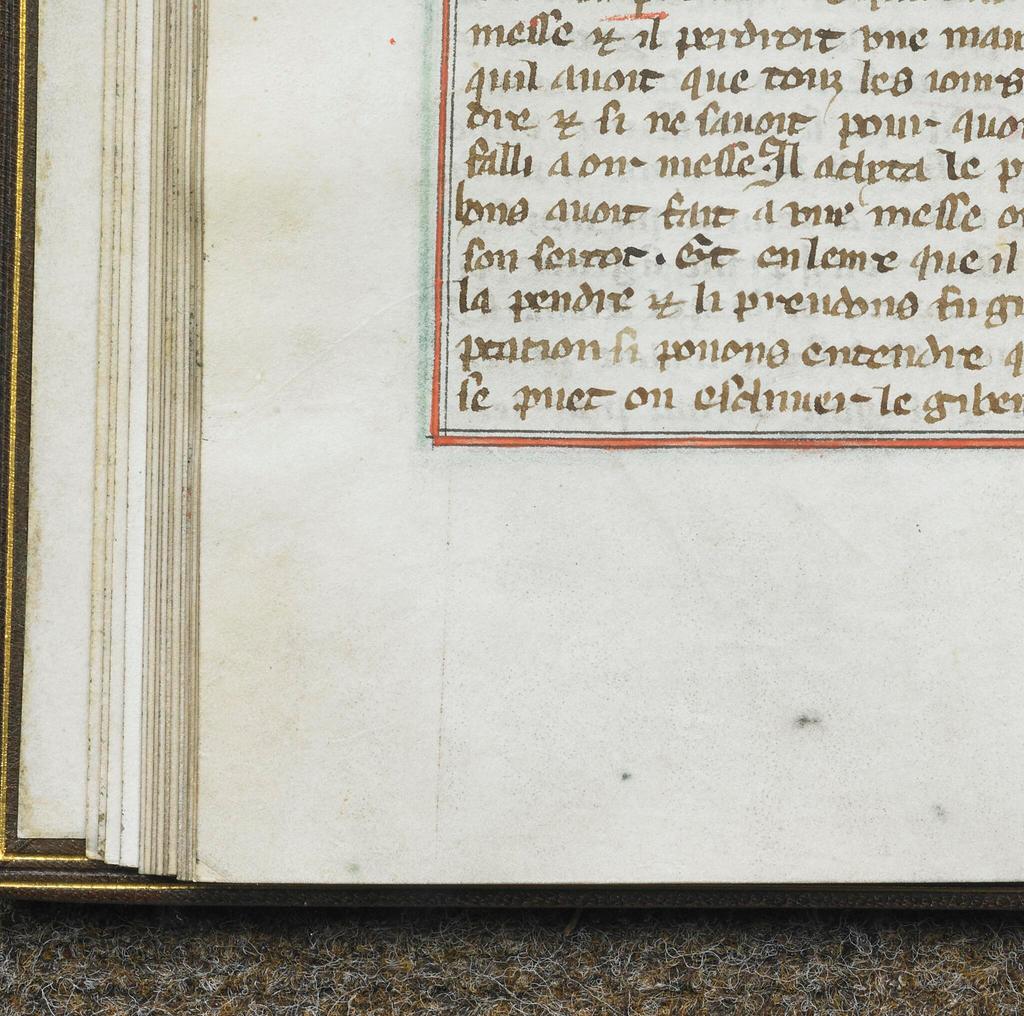 messe ⁊ il perdroit vne man
quil auoit que touz les iours
dire ⁊ si ne sauoit pour quoi
falli a oir messe Il acheta le p
bons auoit fait a vne messe o
son sercot. Et enleure que il
la pendre ⁊ li preudons fu gi
ptation si pouons entendre q
se puet on eschiuer le giber